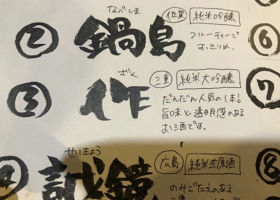 なべしま
② 鍋島 佐賀 純米吟醸 ⑥
フルーティーで
すっきり。
ざく
③ 作 三重 純米大吟醸 ⑦
だんだん人気のしまる
旨味と透明感のある
お酒です。
せいきょう
④ 誠鏡 広島 純米生原酒 ⑧
のみごたえのある